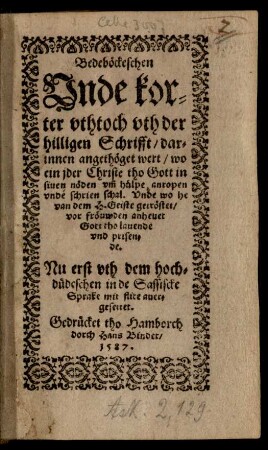 Celle 3007
2
Bedeböckeschen
Vnde kor⸗
ter vthtoch vth der
hilligen Schrifft / dar⸗
innen angethöget wert / wo
ein jder Christe tho Gott in
sinen nöden vm̄ hülpe anropen
vnde schrien schal. Vnde wo he
van dem H. Geiste getröstet /
vor fröuwden anhevet
Gott tho lauende
vnd prisen⸗
de.
Nu erst vth dem hoch⸗
düdeschen in de Sassiske
Sprake mit flite auer⸗
gesettet.
Gedrücket tho Hamborch
dorch Hans Binder /
1587.
Ask: 2,129